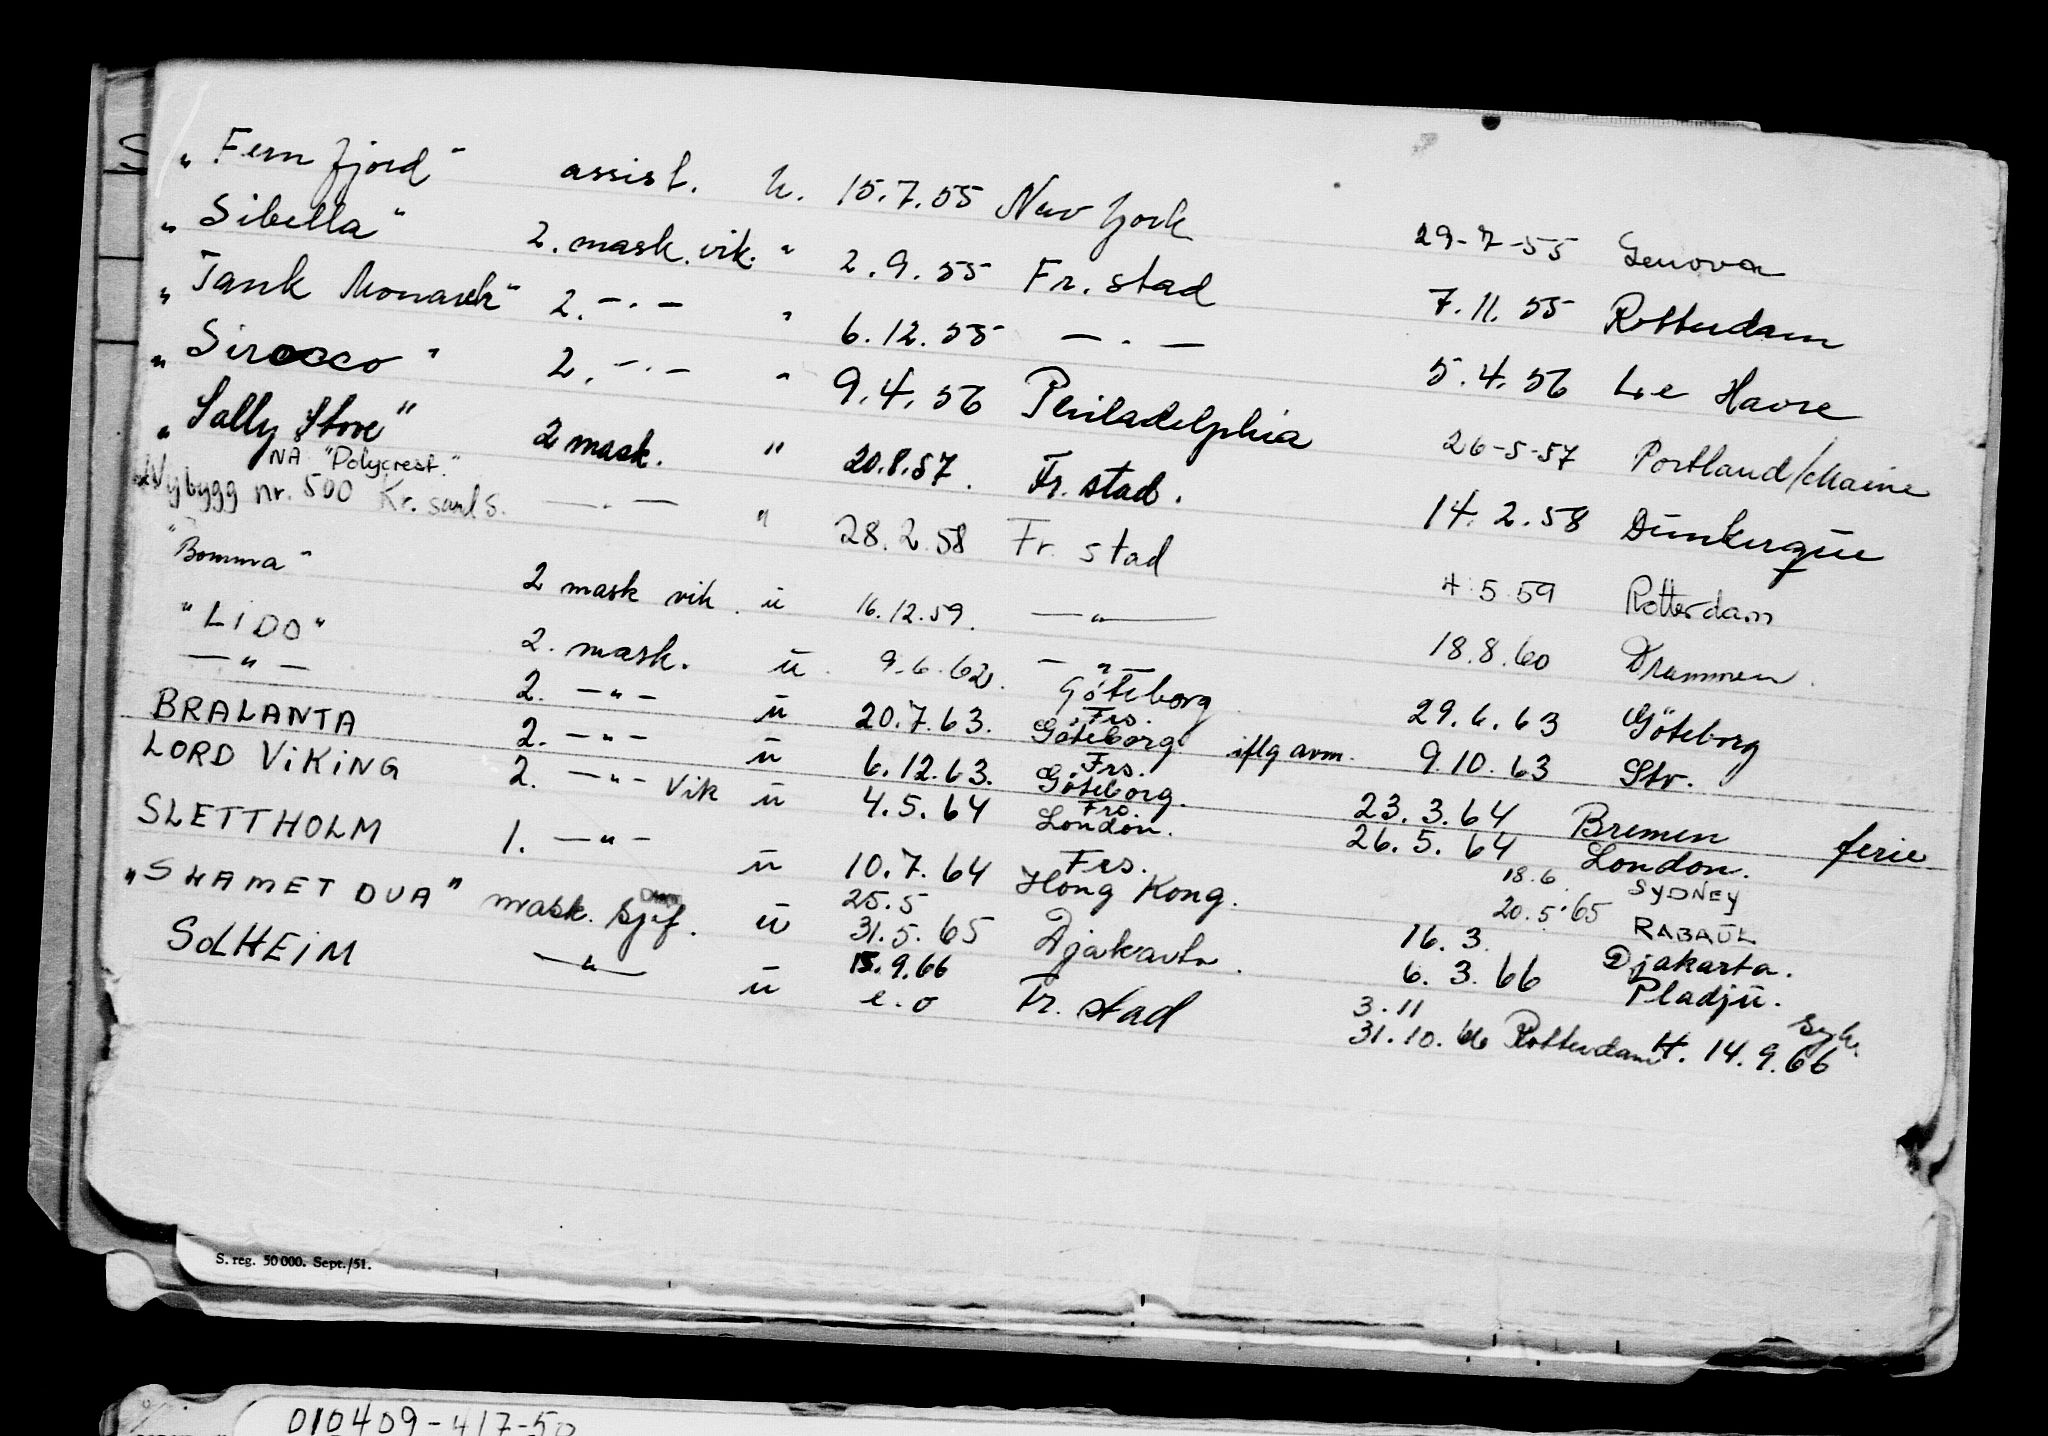 „Fernfjord" assist. u. 15.7.55 New York 29-7-55 Genova
„Sibella" 2. mask. vik. " 2.9.55 Fr.stad 7.11.55 Rotterdam
„Tank Monarch" 2. -·- " 6.12.55 -·- 5.4.56 Le Havre
„Sirocco" 2. -·- " 9.4.56 Philadelphia 26-5-57 Portland/Maine
„Sally Stove" 2 mask. " 20.8.57. Fr.stad. 14.2.58 Dünkerque
NÅ "Polycrest."
Nybygg nr. 500 Kr.sand S. -·- " 28.2.58 Fr.stad 4.5.59 Rotterdam
"Bomma" 2 mask vik. ü 16.12.59. -"- 18.8.60 Drammen.
"LIDO" 2. mask. ü. 9.6.62. -"- Göteborg 29.6.63 Göteborg
-"- 2. -"- ü 20.7.63. Frs. Göteborg iflg avm. 9.10.63 Str.
BRALANTA 2. -"- ü 6.12.63. Frs. Göteborg. 23.3.64 Bremen ferie
LORD ViKiNG 2. -"- Vik ü 4.5.64 Frs. London. 26.5.64 London.
18.6 SYDNEY
SLETTHOLM 1. -"- ü 10.7.64 Frs. Hong Kong. 20.5.65 RABAÜL
„SLAMET DUA" mask. sjef. ü 25.5 31.5.65 Djakarta. 16.3. Djakarta.
6.3.66 Pladjü.
SOLHEiM -"- ü 15.9.66 e.o Fr.stad 3.11 31.10.66 Rotterdam H. 14.9.66 Syk.
S. reg. 50 000. Sept./51.
010409-417-50